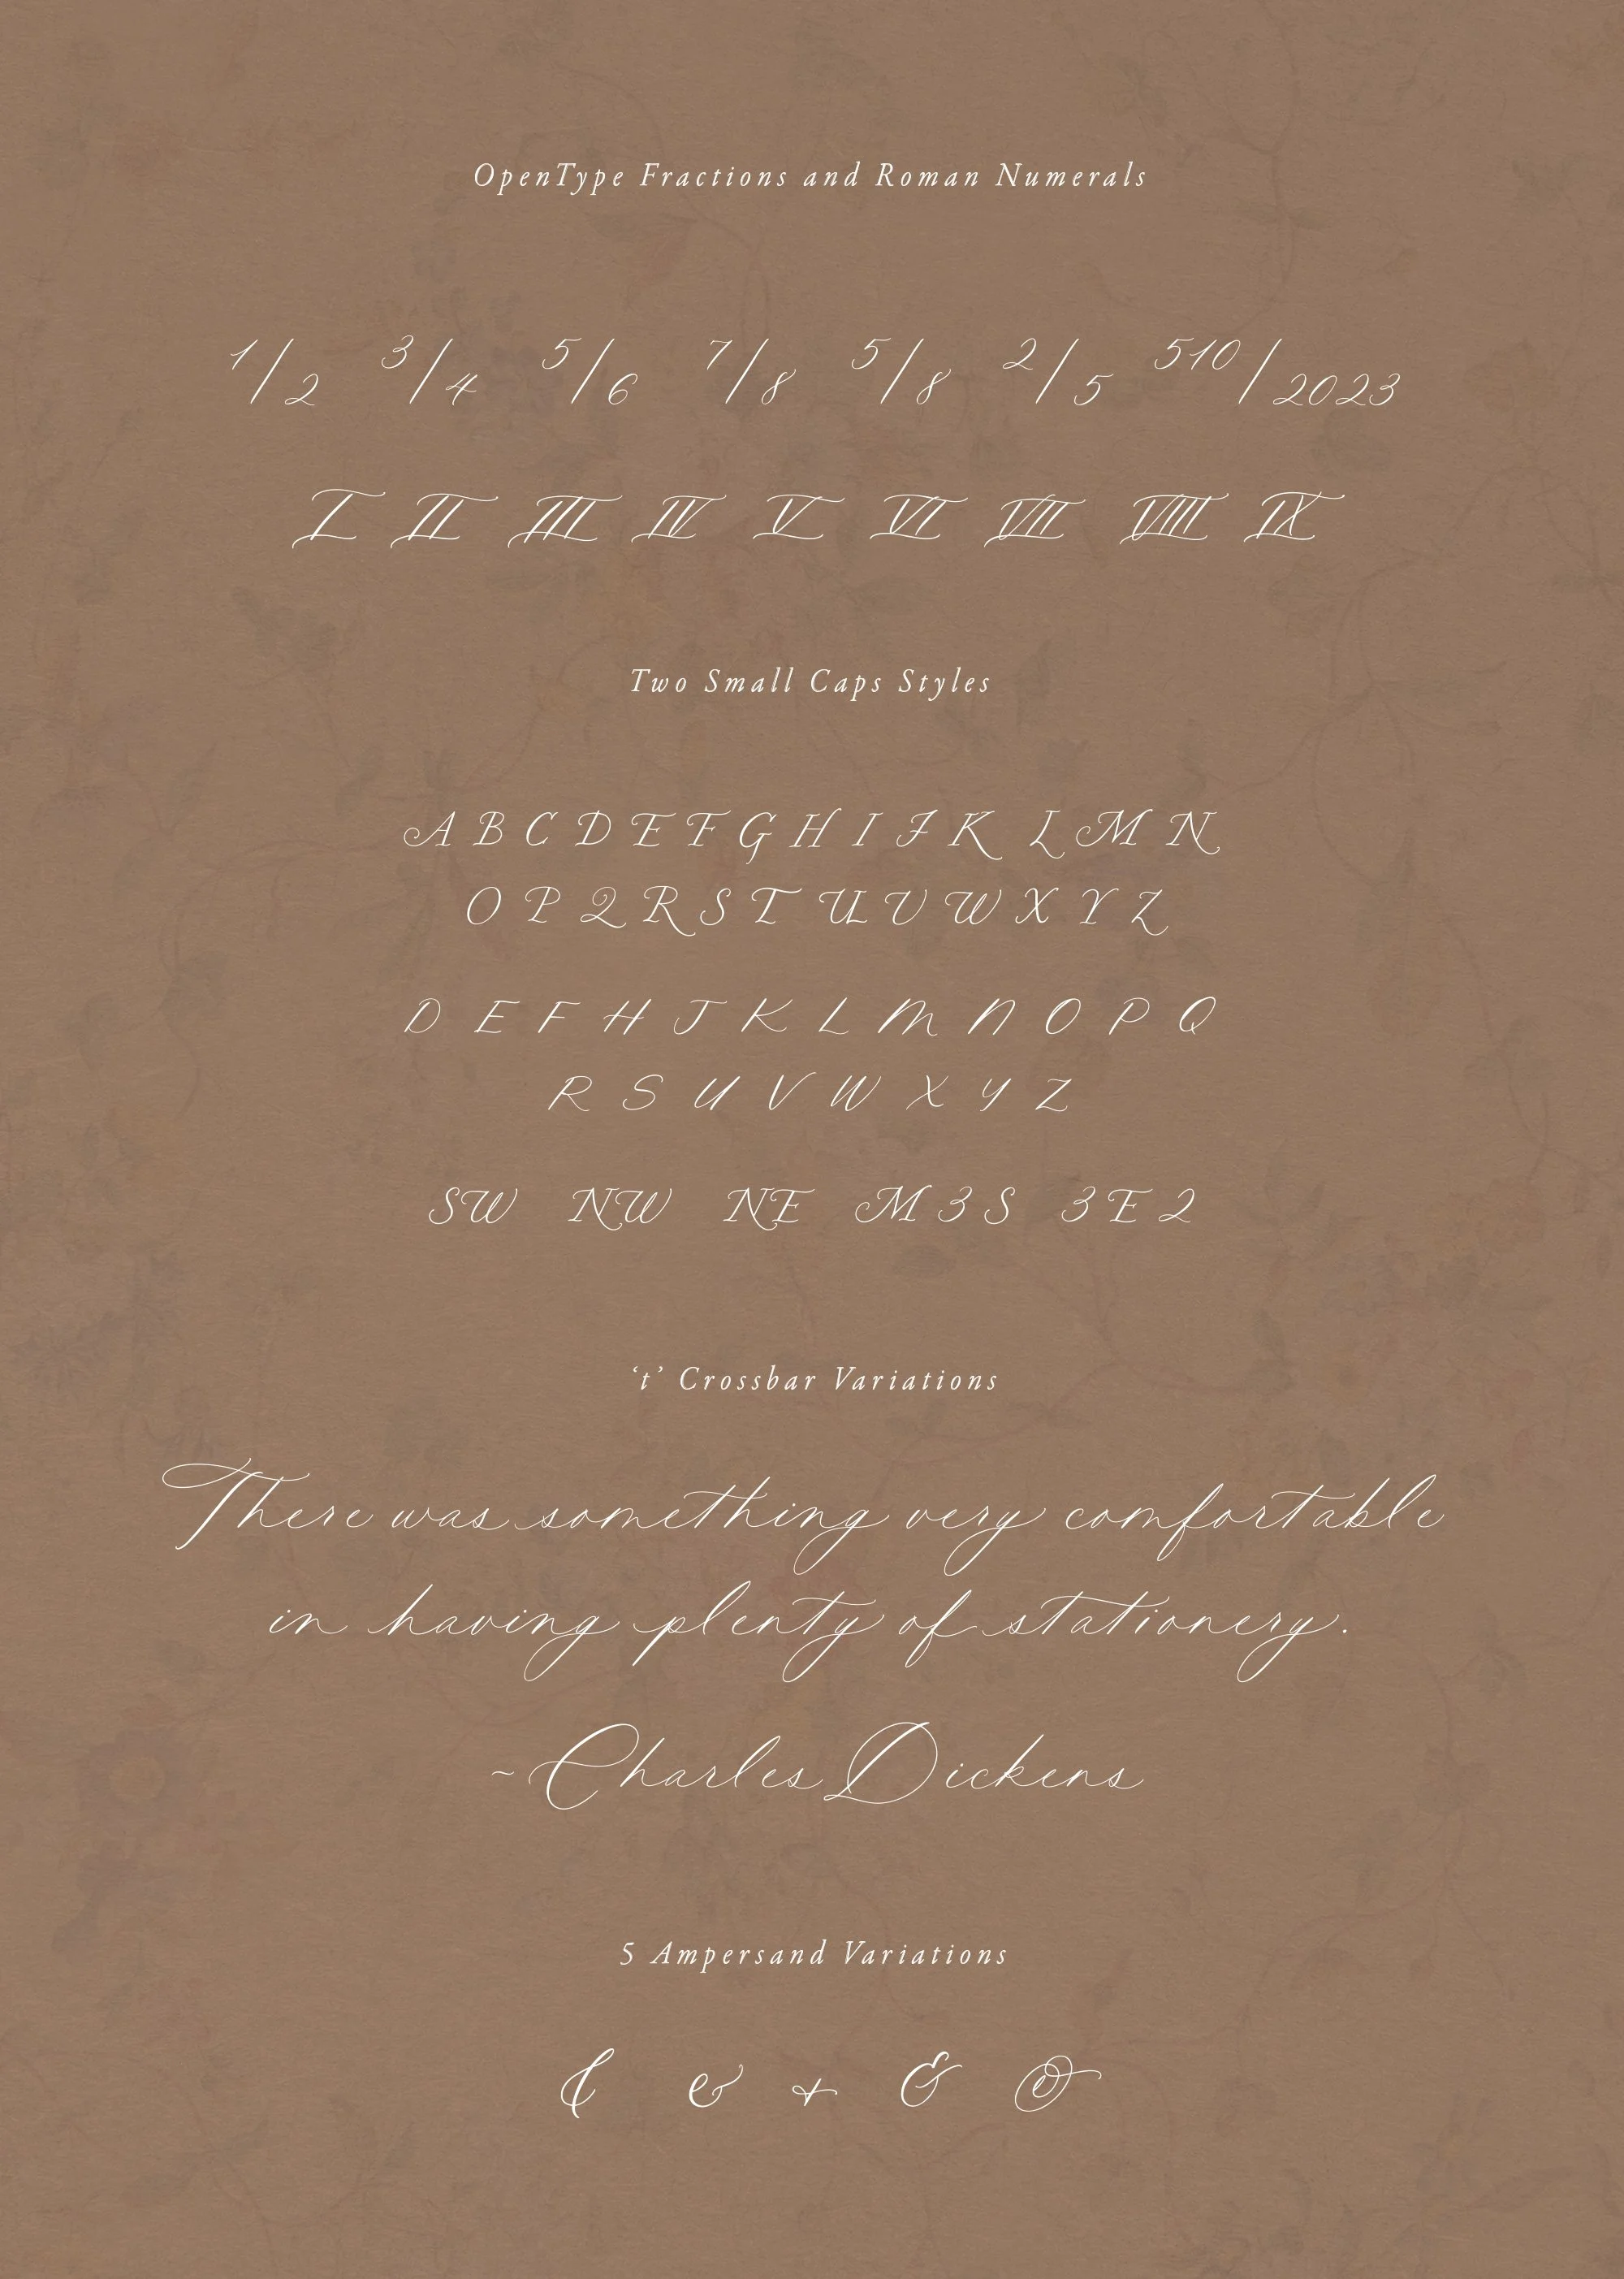 OpenType Fractions and Roman Numerals
1/2 3/4 5/6 7/8 5/8 2/5 510/2023
I II III IV V VI VII VIII IX
Two Small Caps Styles
A B C D E F G H I J K L M N
O P Q R S T U V W X Y Z
D E F H J K L M N O P Q
R S U V W X Y Z
SW NW NE M3S 3E2
‘t’ Crossbar Variations
There was something very comfortable
in having plenty of stationery.
~ Charles Dickens
5 Ampersand Variations
& & & & &